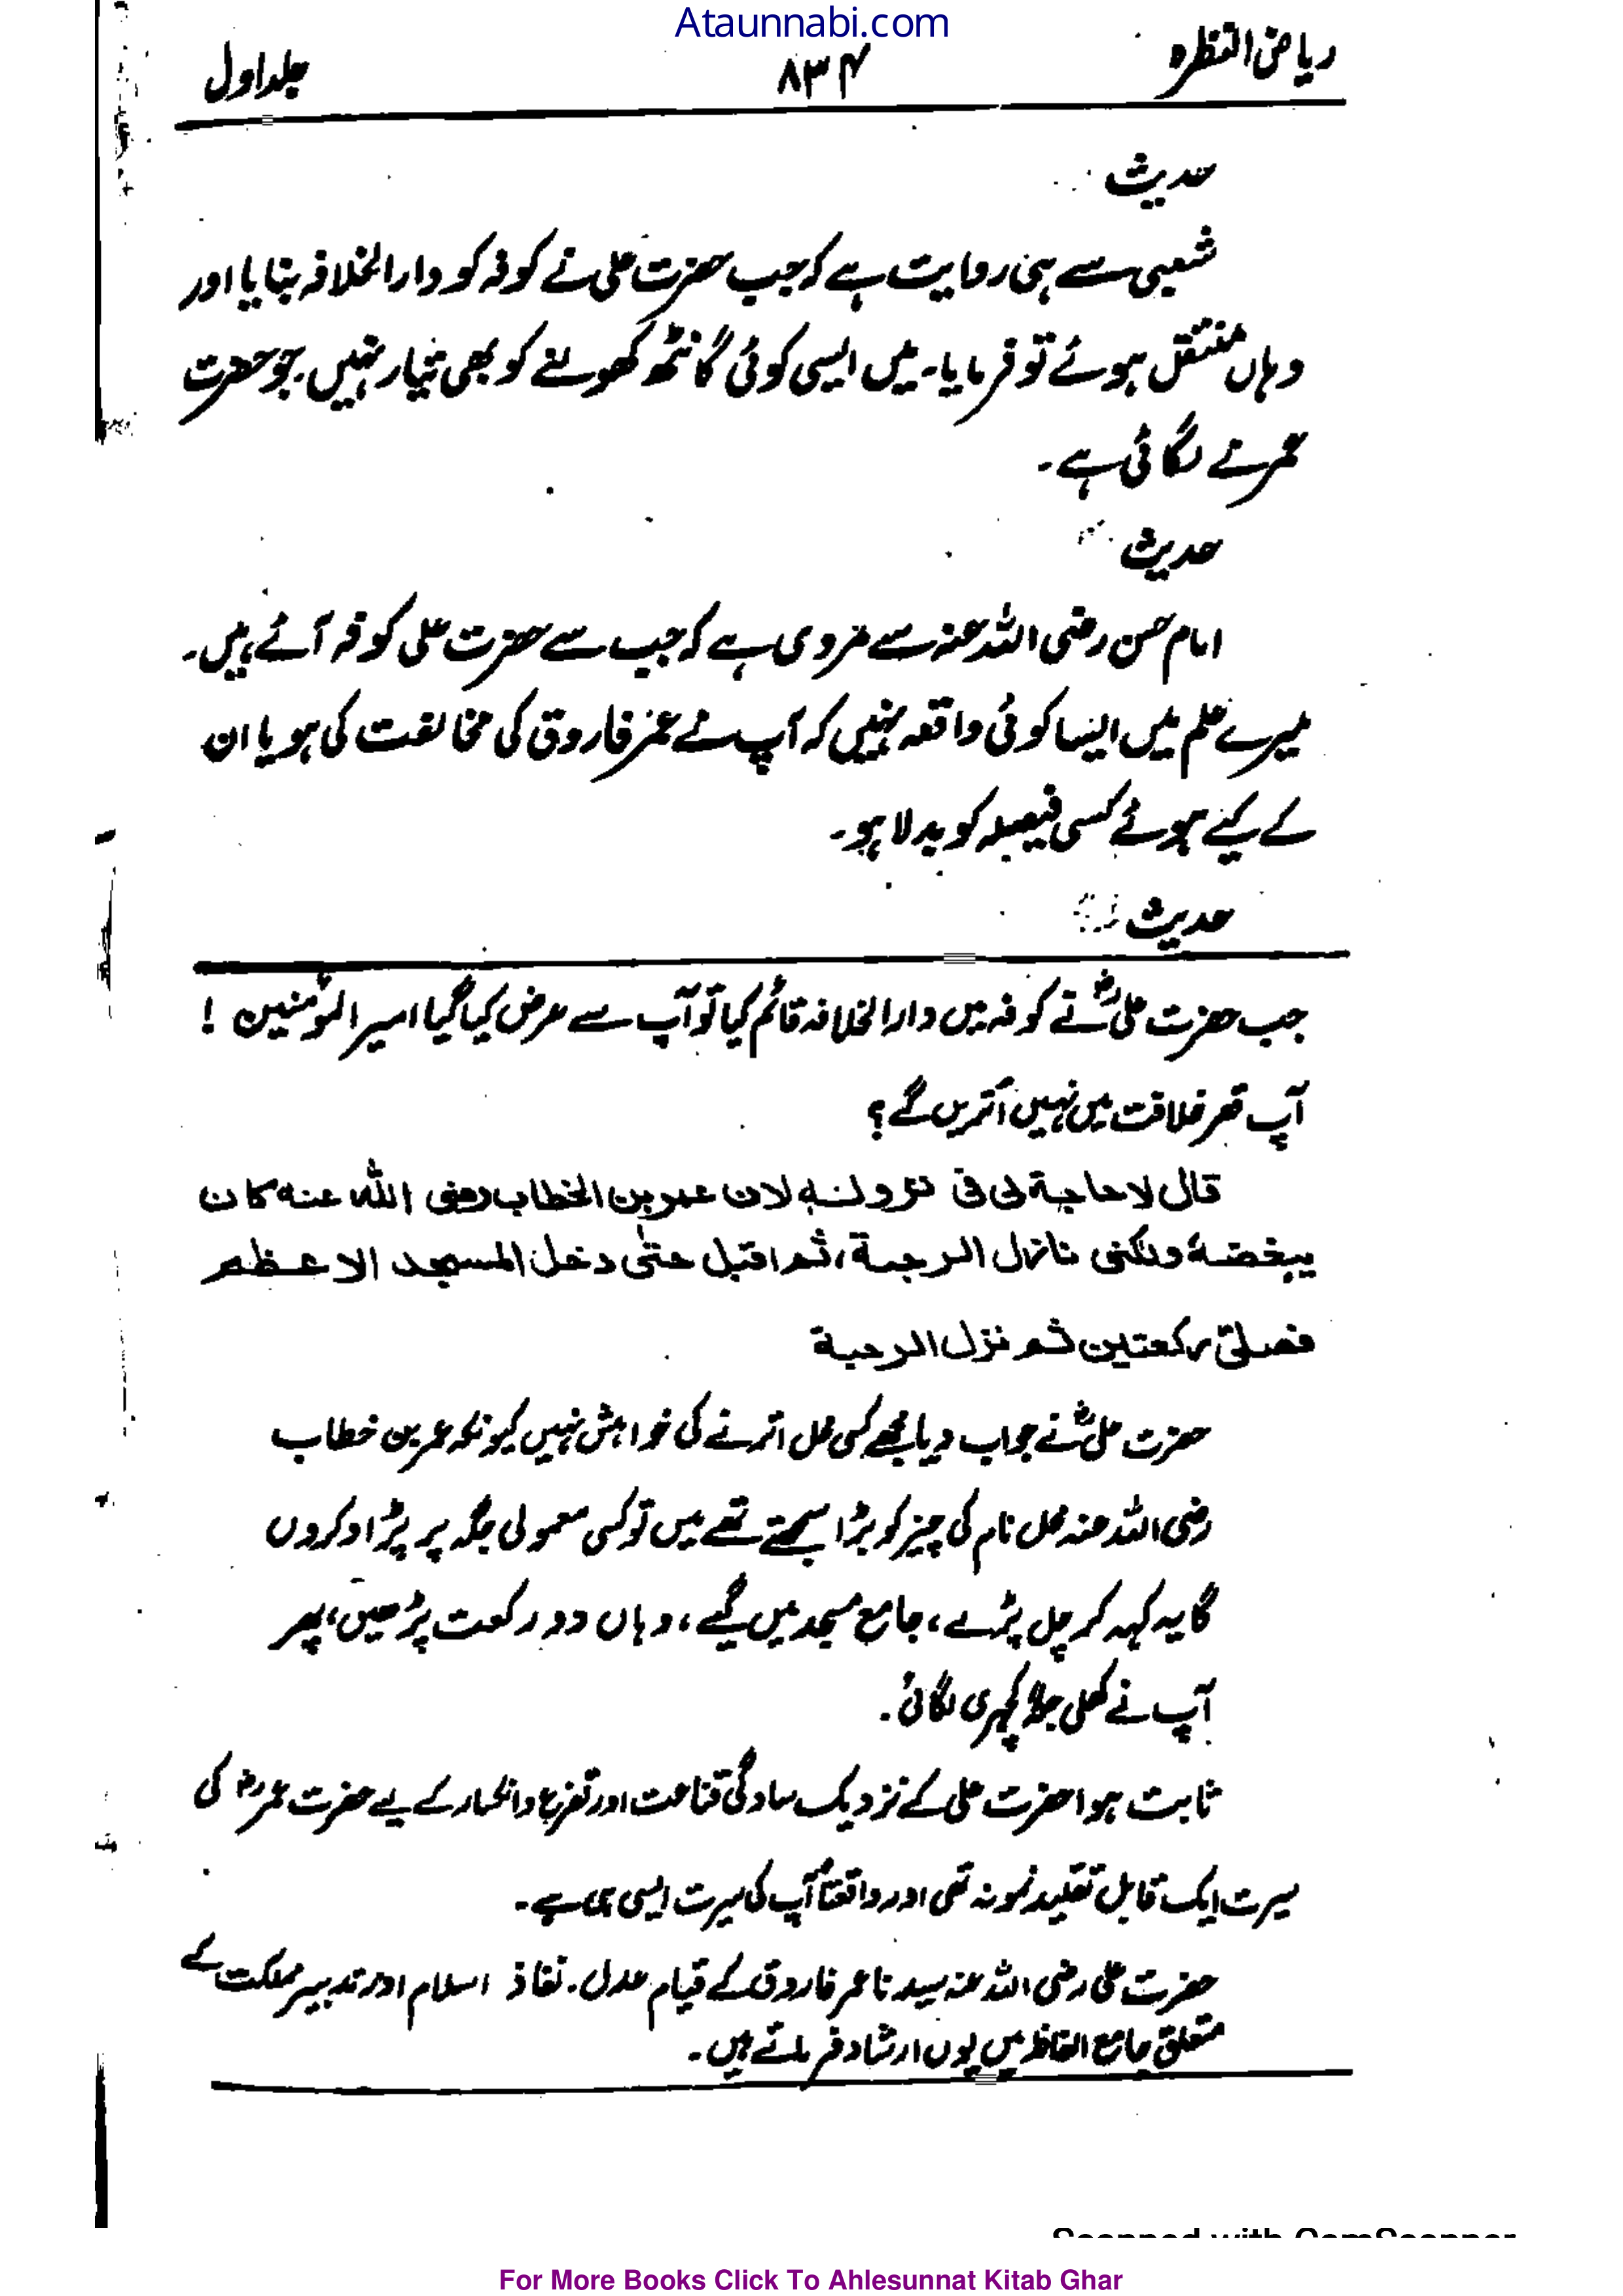 Ataunnabi.com
ریاض النظرہ ۸۳۴ جلد اول
حدیث
شعبی سے ہی روایت ہے کہ جب حضرت علی نے کوفہ کو دارالخلافہ بنایا اور
وہاں منتقل ہوئے تو فرمایا۔ میں ایسی کوئی گانٹھ کھولنے کو بھی تیار نہیں۔ جو حضرت
عمر نے لگائی ہے۔
حدیث
امام حسن رضی اللہ عنہ سے مروی ہے کہ جب سے حضرت علی کوفہ آئے ہیں۔
میرے علم میں ایسا کوئی واقعہ نہیں کہ آپ نے عمر فاروق کی مخالفت کی ہو یا ان
کے کیے ہوئے کسی فیصلہ کو بدلا ہو۔
حدیث
جب حضرت علیؓ نے کوفہ میں دارالخلافہ قائم کیا تو آپ سے عرض کیا گیا امیر المؤمنین !
آپ قصر خلافت میں نہیں اُتریں گے؟
قال لا حاجة لی فی نزولہ لان عمر بن الخطاب رضی اللہ عنہ کان
یبغضہٗ ولکنی نازل الرحبة، ثم اقبل حتیٰ دخل المسجد الاعظم
فصلیّ رکعتین ثم نزل الرحبة
حضرت علیؓ نے جواب دیا مجھے کسی محل اترنے کی خواہش نہیں کیونکہ عمر بن خطاب
رضی اللہ عنہ محل نام کی چیز کو بڑا سمجھتے تھے میں تو کسی معمولی جگہ پر پڑاو کروں
گا یہ کہہ کر چل پڑے، جامع مسجد میں گیے، وہاں دو رکعت پڑھیں، پھر
آپ نے کھلی جگہ کچہری لگائی۔
ثابت ہوا حضرت علی کے نزدیک سادگی قناعت اور تضرع وانکسار کے لیے حضرت عمرؓ کی
سیرت ایک قابل تقلید نمونہ تھی اور واقعتاً آپ کی سیرت ایسی ہی ہے۔
حضرت علی رضی اللہ عنہ سیدنا عمر فاروق کے قیام عدل۔ نفاذ اسلام اور تدبیر مملکت کے
متعلق جامع الفاظ میں یوں ارشاد فرماتے ہیں۔
Scanned with CamScanner
For More Books Click To Ahlesunnat Kitab Ghar